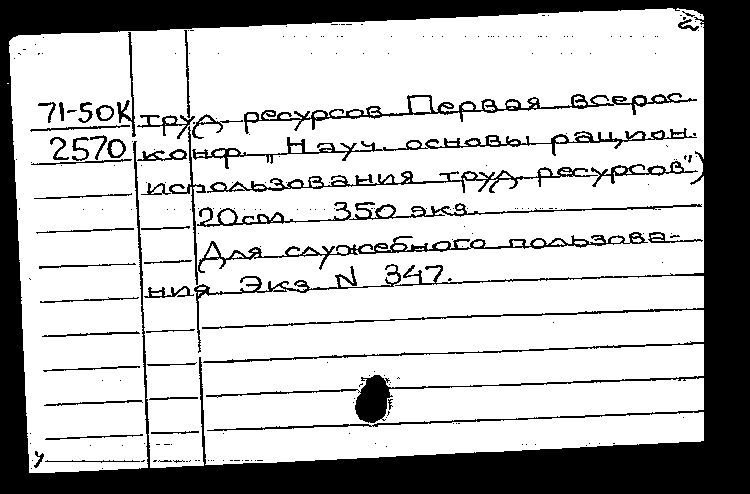 2
71-50К труд. ресурсов. Первая всерос.
2570 конф. „Науч. основы рацион.
использования труд. ресурсов")
20см. 350 экз.
Для служебного пользова-
ния. Экз. N 347.
у